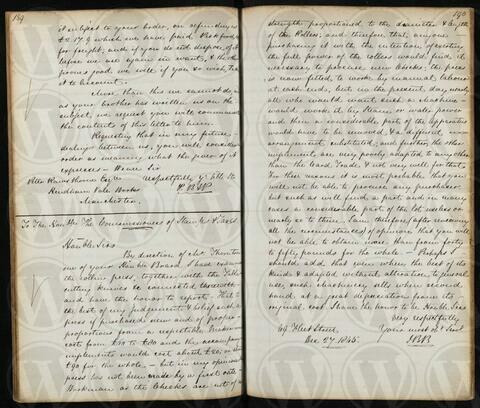 189
it subject to your order, on refunding us
£2.17.9 which we have paid
for freight, and if you do not dispose of it
before we are again in want, & the
proves good we will if you so wish, take it
to account.
More than this we cannot do and
as your brother has written us on the
subject, we request you will communicate
the contents of this letter to him.
Requesting that in any future
dealings between us, you will consider an
order as meaning what the giver of it
expresses — We are Sir
Respectfully yr Obt Sts
Peter Rawsthorne Esqre
Pendleham Vale Works
Manchester
To The Honble The Commissioners of Stamps & Taxes
Honble Sirs
By direction of Mr. Thornton
one of your Honble Board I have examined
the rolling press, together with the Table
cutting knives &c connected therewith
and have the honor to report — That to
the best of my judgement & belief such a
press if purchased new and of proper
proportions from a respectable Workman
cost from £70 to £80 and the accompanying
implements would cost about £20, or say
£90 for the whole, — but in my opinion
press has not been made by a first rate
Workman as the Cheeks are not of a
190
strength proportioned to the diameter & length
of the Rollers; and therefore, that any one
purchasing it with the intention of exerting
the full power of the rollers would find it
necessary to procure new cheeks; the press
is now fitted to work by manual labour
at each end, but in the present day nearly
all who would want such a machine
would work it by Steam, or water power
and then a considerable part of the apparatus
would have to be removed, & a different
arrangement substituted; and further the other
implements are very poorly adapted to any other
than the Card Trade, & not very well for that;
For these reasons it is most probable that you
will not be able to procure any purchaser
but such as will find a part, and in many
cases a considerable part of the apparatus
nearly useless to them. I am therefore (after reviewing
all the circumstances) of opinion, that you will
not be able to obtain more than from forty
to fifty pounds for the whole — Perhaps I
should add, that even where the best of the
kinds & adapted without alteration to general
use, such machinery sells when second
hand at a great depreciation from its
original cost. I have the honor to be Honble Sirs
Very respectfully
69 Fleet Street
Yours most obt Servt
Dec 27 1845